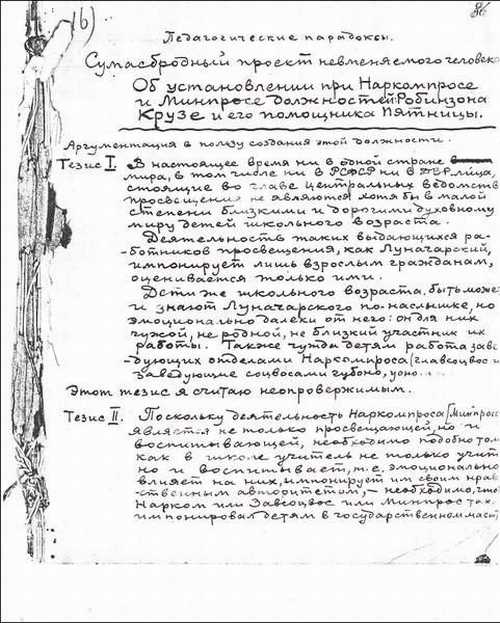 1б)
86
Педагогические парадоксы.
Сумасбродный проект невменяемого человека
Об установлении при Наркомпросе
и Минпросе должностей: Робинзона
Крузе и его помощника Пятницы.
Аргументация в пользу создания этой должности.
Тезис I. В настоящее время ни в одной стране
мира, в том числе ни в РСФСР ни в ДВР лица,
стоящие во главе центральных ведомств
просвещения не являются хотя бы в малой
степени близкими и дорогими духовному
миру детей школьного возраста.
Деятельность таких выдающихся ра-
-ботников просвещения, как Луначарский,
импонирует лишь взрослым гражданам,
оценивается только ими.
Дети же школьного возраста, быть може
и знают Луначарского по-наслышке, но
эмоционально далеки от него: он для них
чужой, не родной, не близкий участник их
работы. Также чужда детям работа заве
-дующих отделами Наркомпроса (главсоцвос и
заведующие соцвосами губоно, уоно....
Этот тезис я считаю неопровержимым.
Тезис II. Поскольку деятельность Наркомпроса (Минпрос
является не только просвещающей, но и
воспитывающей, необходимо подобно том
как в школе учитель не только учит
но и воспитывает, т.е. эмоционально
влияет на них, импонирует им своим нрав
-ственным авторитетом, – необходимо, что
Нарком или Завсоцвос или Минпрос так
импонировал детям в государственном масш